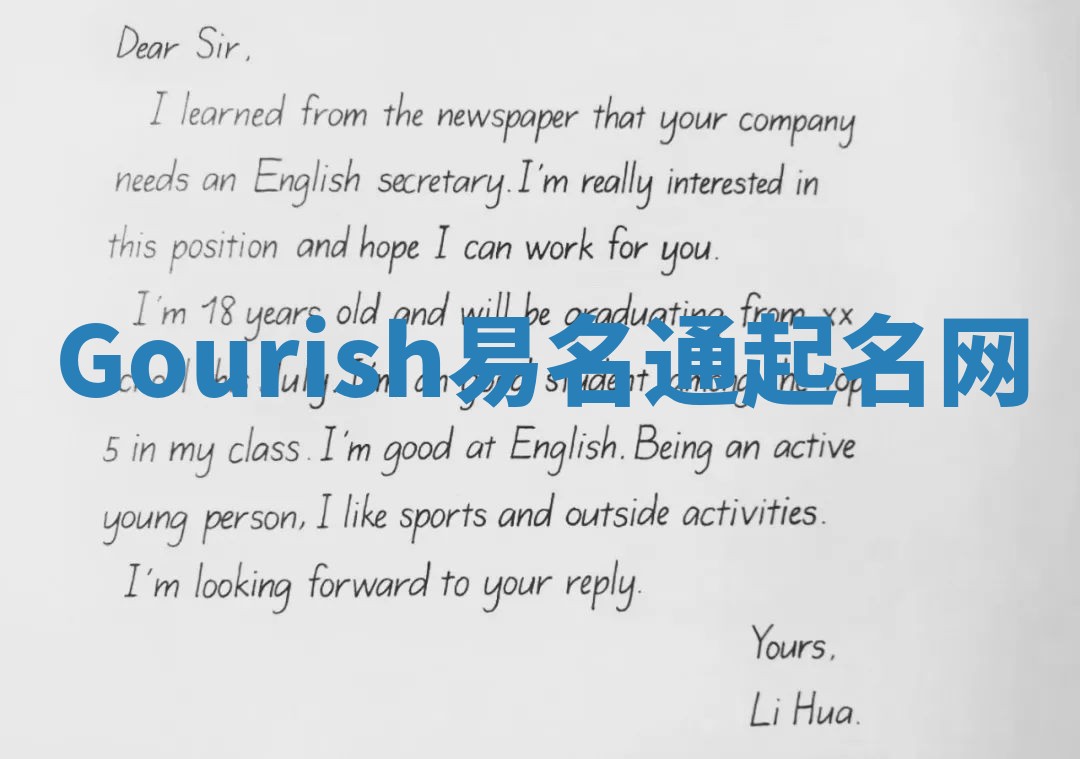 Dear Sir,
I learned from the newspaper that your company
needs an English secretary. I'm really interested in
this position and hope I can work for you.
I'm 18 years old and will be graduating from xx
Gourish易名通起名网
July. I'm an good student among the top
5 in my class. I'm good at English. Being an active
young person, I like sports and outside activities.
I'm looking forward to your reply.
Yours,
Li Hua.